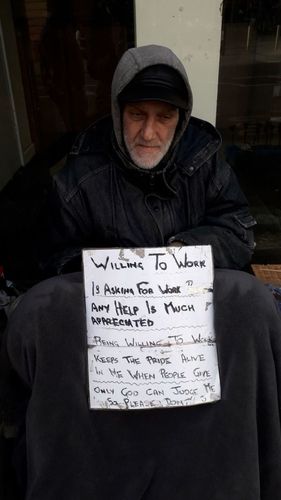 WILLING TO WORK
IS ASKING FOR WORK
ANY HELP IS MUCH
APPRECIATED
BEING WILLING TO WORK
KEEPS THE PRIDE ALIVE
IN ME WHEN PEOPLE GIVE
ONLY GOD CAN JUDGE ME
SO PLEASE DON'T